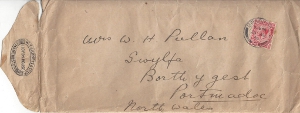 Mrs W H Pullan
Gwylfa
Borth y gest
Portmadoc
North Wales